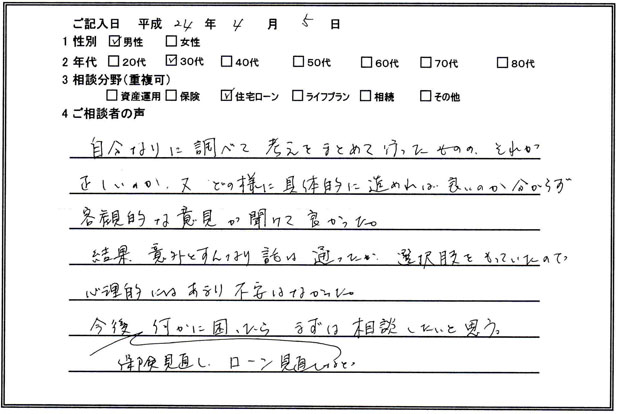 ご記入日 平成 24 年 4 月 5 日
1 性別 ☑男性 □女性
2 年代 □20代 ☑30代 □40代 □50代 □60代 □70代 □80代
3 相談分野(重複可)
□資産運用 □保険 ☑住宅ローン □ライフプラン □相続 □その他
4 ご相談者の声
自分なりに調べて考えをまとめて行ったものの、それが
正しいのか、又どの様に具体的に進めれば良いのか分からず
客観的な意見が聞けて良かった。
結果、意外とすんなり話は通ったが、選択肢をもっていたので
心理的にはあまり不安はなかった。
今後何かに困ったらまずは相談したいと思う。
保険見直し、ローン見直しなど。